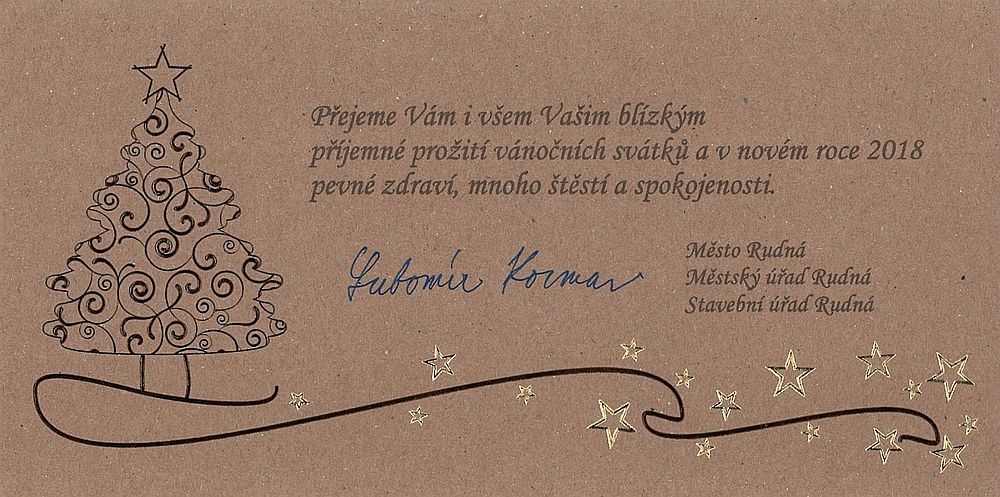 Přejeme Vám i všem Vašim blízkým
příjemné prožití vánočních svátků a v novém roce 2018
pevné zdraví, mnoho štěstí a spokojenosti.
Lubomír
Město Rudná
Městský úřad Rudná
Stavební úřad Rudná